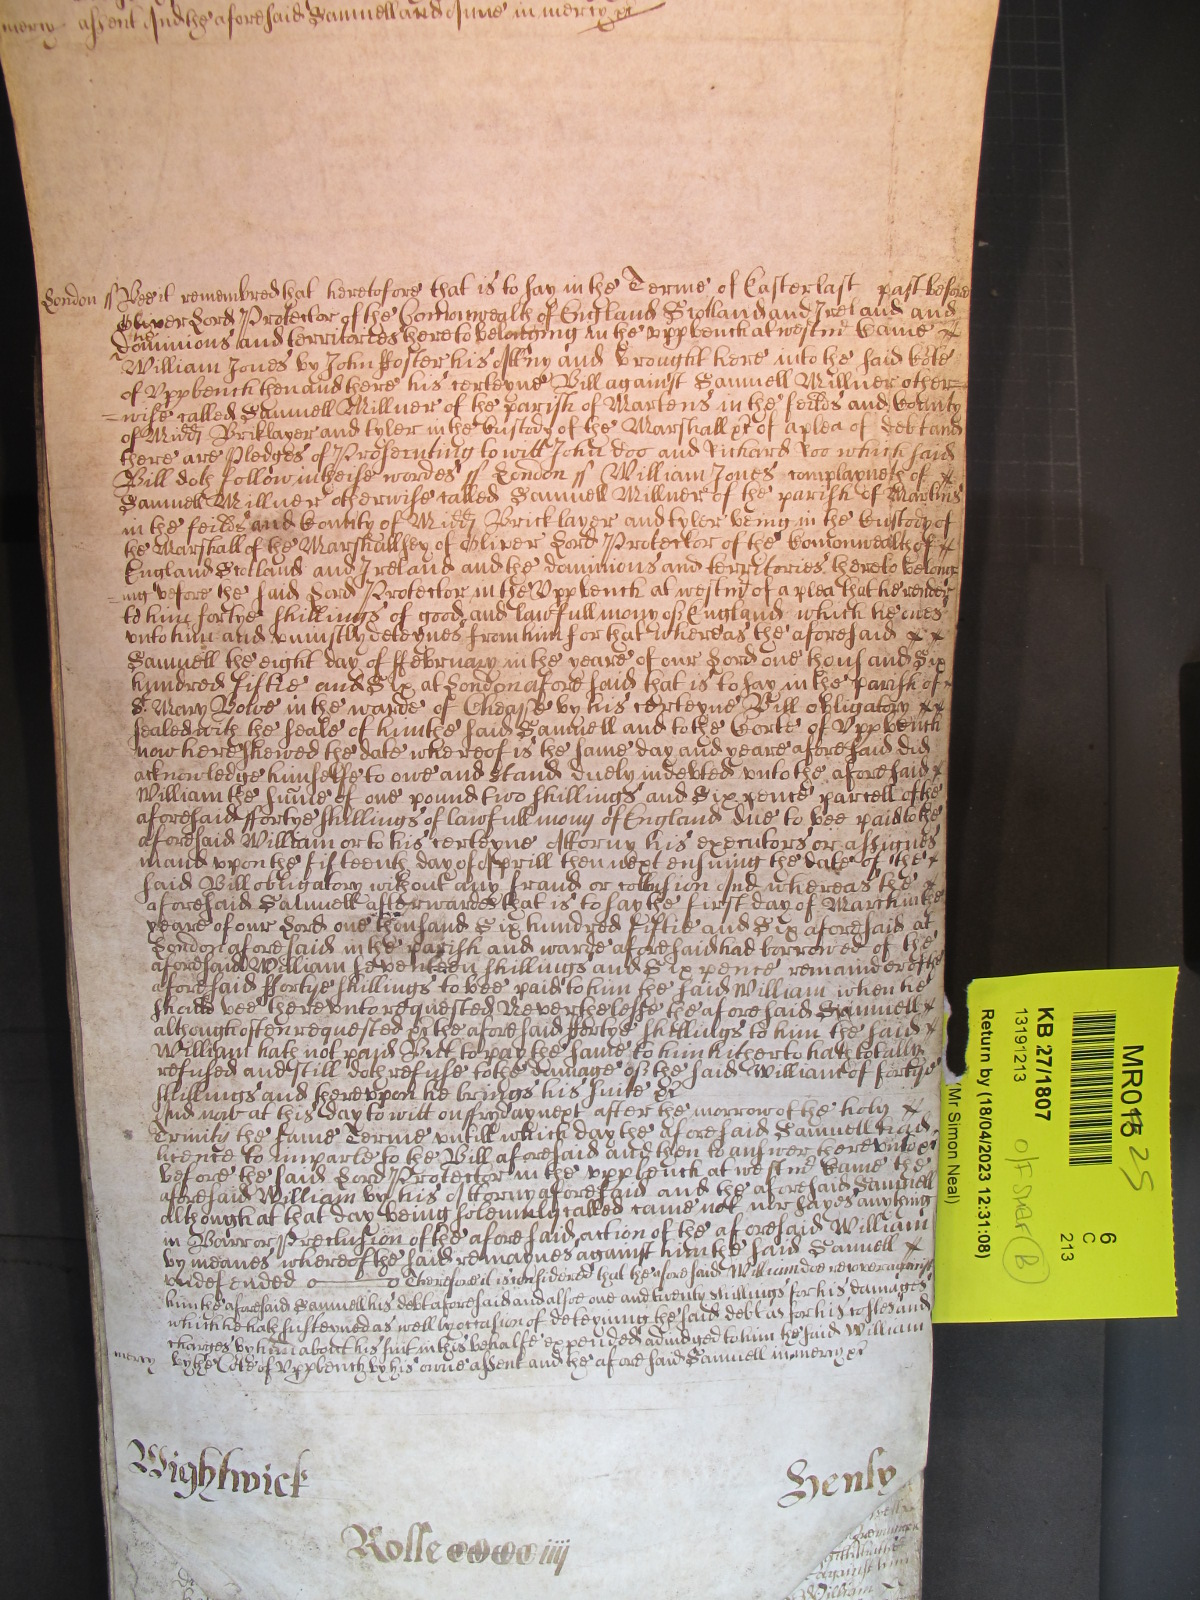 mercy assent And the aforesaid Samuell and Anne in mercy &c
London ss Bee it remembred that heretofore that is to say in the Terme of Easter last past before
Oliver Lord Protector of the Comonwealth of England Scotland and Ireland and
the dominions and territories thereto belonging in the vppbench at westmr Came
William Jones by John Foster his Attny and brought here into the said Cote
of Vppbench then and there his certeyne Bill against Samuell Millner other=
=wise called Samuell Millner of the parish of Martens in the feilds and County
of Midd Briklayer and tyler in the Custody of the Marshall &c of a plea of debt and
there are Pledges of Prosecuting to witt John Doo and Richard Roo which said
Bill doth follow in theise wordes ss London ss William Jones complayneth of
Samuell Millner otherwise called Samuell Millner of the parish of Martins
in the feilds and County of Midd Bricklayer and tyler being in the Custody of
the Marshall of the Marshallsey of Oliver Lord Protector of the Comonwealth of
England Scotland and Ireland and the dominions and territories thereto belong=
=ing before the said Lord Protector in the Vppbench at westmr of a plea that he render
to him fortye shillings of good and lawfull mony of England which he owes
vnto him and vniustly deteynes from him for that whereas the aforesaid
Samuell the eight day of ffebruary in the yeare of our Lord one thousand Six
hundred fiftie and Six at London aforesaid that is to say in the parish of
S Mary Bowe in the warde of Cheape by his certeyne Bill obligatory
sealed with the seale of him the said Samuell and to the Corte of Vppbench
now here shewed the date whereof is the same day and yeare aforesaid did
acknowledge himselfe to owe and stand duely indebted vnto the aforesaid
William the sume of one pound two shillings and Six pence parcell of the
aforesaid ffortye shillings of lawfull mony of England due to bee paid to the
aforesaid William or to his certeyne Attorny his executors or assignes
in and vpon the fifteenth day of Aprill then next ensuing the date of the
said Bill obligatory without any fraud or collusion And whereas the
aforesaid Samuell afterwardes that is to say the first day of March in the
yeare of our Lord one thousand Six hundred fiftie and Six aforesaid at
London aforesaid in the parish and warde aforesaid had borrowed of the
aforesaid William seventeen shillings and Six pence remainder of the
aforesaid ffortye shillings to bee paid to him the said William when he
should bee therevnto requested Neverthelesse the aforesaid Samuell
although often requested &c the aforesaid ffortye shillings to him the said
William hath not paid But to pay the same to him hitherto hath totally
refused and still doth refuse to the damage of the said William of fortye
shillings and therevpon he brings his suite &c
And now at this day to witt on ffryday next after the morrow of the holy
Trinity the same Terme vntill which day the aforesaid Samuell had
licence to imparle to the Bill aforesaid and then to answer therevnto &c
before the said Lord Protector in the vppbench at westmr Came the
aforesaid William by his Attorny aforesaid and the aforesaid Samuell
although at that day being solemnly called came not nor sayes anything
in Barr or Preclusion of the aforesaid action of the aforesaid William
by meanes whereof the said remaynes against him the said Samuell
vndefended Therefore it is considered that the aforesaid William doe recover against
him the aforesaid Samuell his debt aforesaid and alsoe one and twenty shillings for his damages
which he hath susteyned as well by occasion of deteyning the said debt as for his costes and
charges by him about his suit in this behalfe expended adiudged to him the said William
mercy by the Cote of Vppbench by his owne assent and the aforesaid Samuell in mercy &c
Wightwick Henly
Rolle iiij
William
MR015
25
6
C
213
KB 27/1807
13191213
Return by (18/04/2023 12:31:08)
(Mr Simon Neal)
B